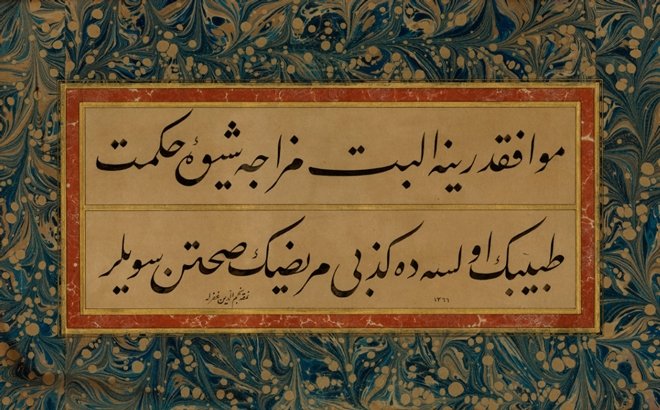 موافقدر ینه البت مزاجه شیوۀ حکمت
طبیبك اولسه ده کذبی مریضك صحتن سویلر
١٣٦١
نمقه نجم الدین غفرله